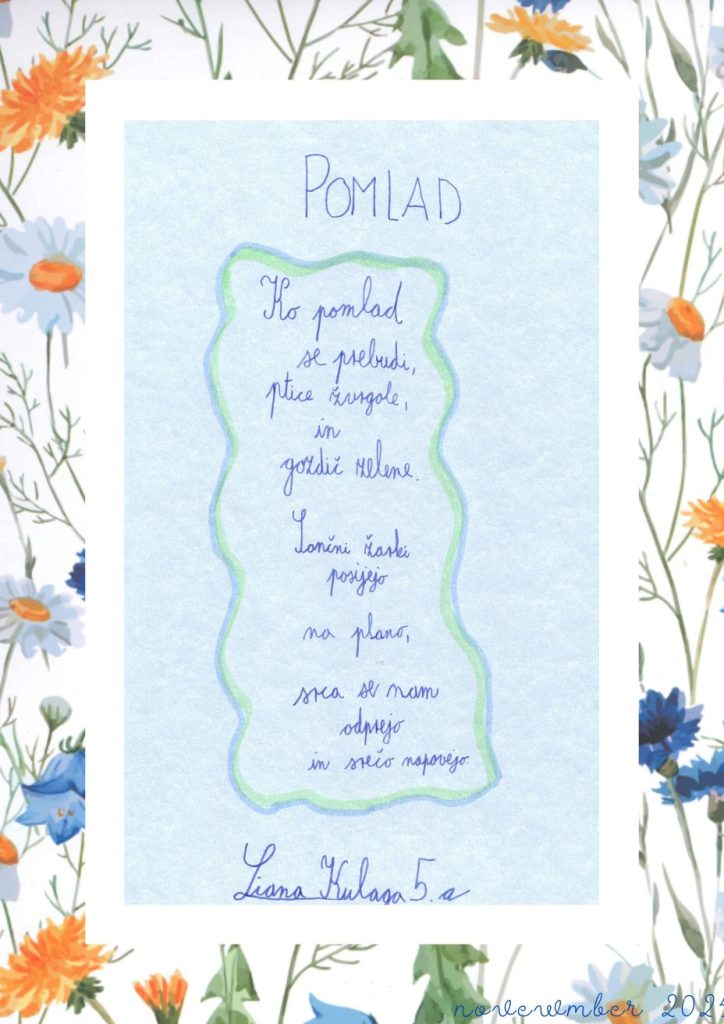 POMLAD
Ko pomlad
se prebudi,
ptice žvrgole,
in
gozdič zelene.
Sončni žarki
posijejo
na plano,
srca se nam
odprejo
in srečo napovejo.
Liana Kulaga 5. a